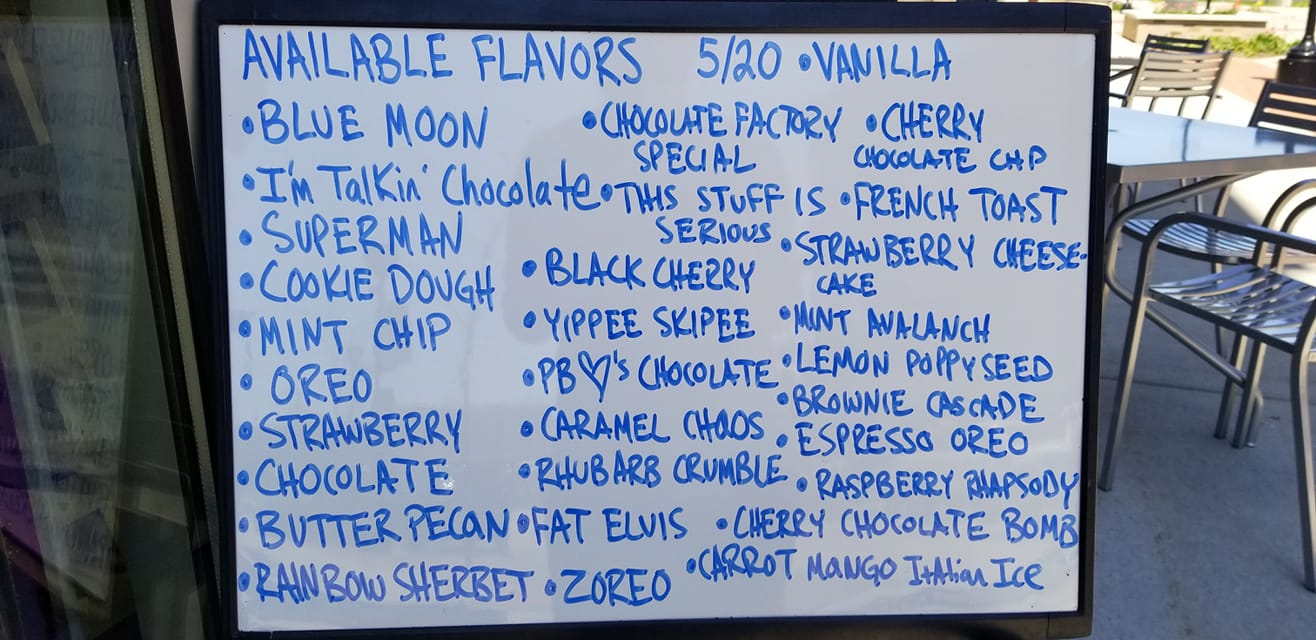 AVAILABLE FLAVORS 5/20
• BLUE MOON
• I'm Talkin' Chocolate
• SUPERMAN
• COOKIE DOUGH
• MINT CHIP
• OREO
• STRAWBERRY
• CHOCOLATE
• BUTTER PECAN
• RAINBOW SHERBET
• CHOCOLATE FACTORY
SPECIAL
• THIS STUFF IS
SERIOUS
• BLACK CHERRY
• YIPPEE SKIPEE
• PB ♡'s CHOCOLATE
• CARAMEL CHAOS
• RHUBARB CRUMBLE
• FAT ELVIS
• ZOREO
• VANILLA
• CHERRY
CHOCOLATE CHIP
• FRENCH TOAST
• STRAWBERRY CHEESE-
CAKE
• MINT AVALANCH
• LEMON POPPYSEED
• BROWNIE CASCADE
• ESPRESSO OREO
• RASPBERRY RHAPSODY
• CHERRY CHOCOLATE BOMB
• CARROT MANGO ItAlian Ice